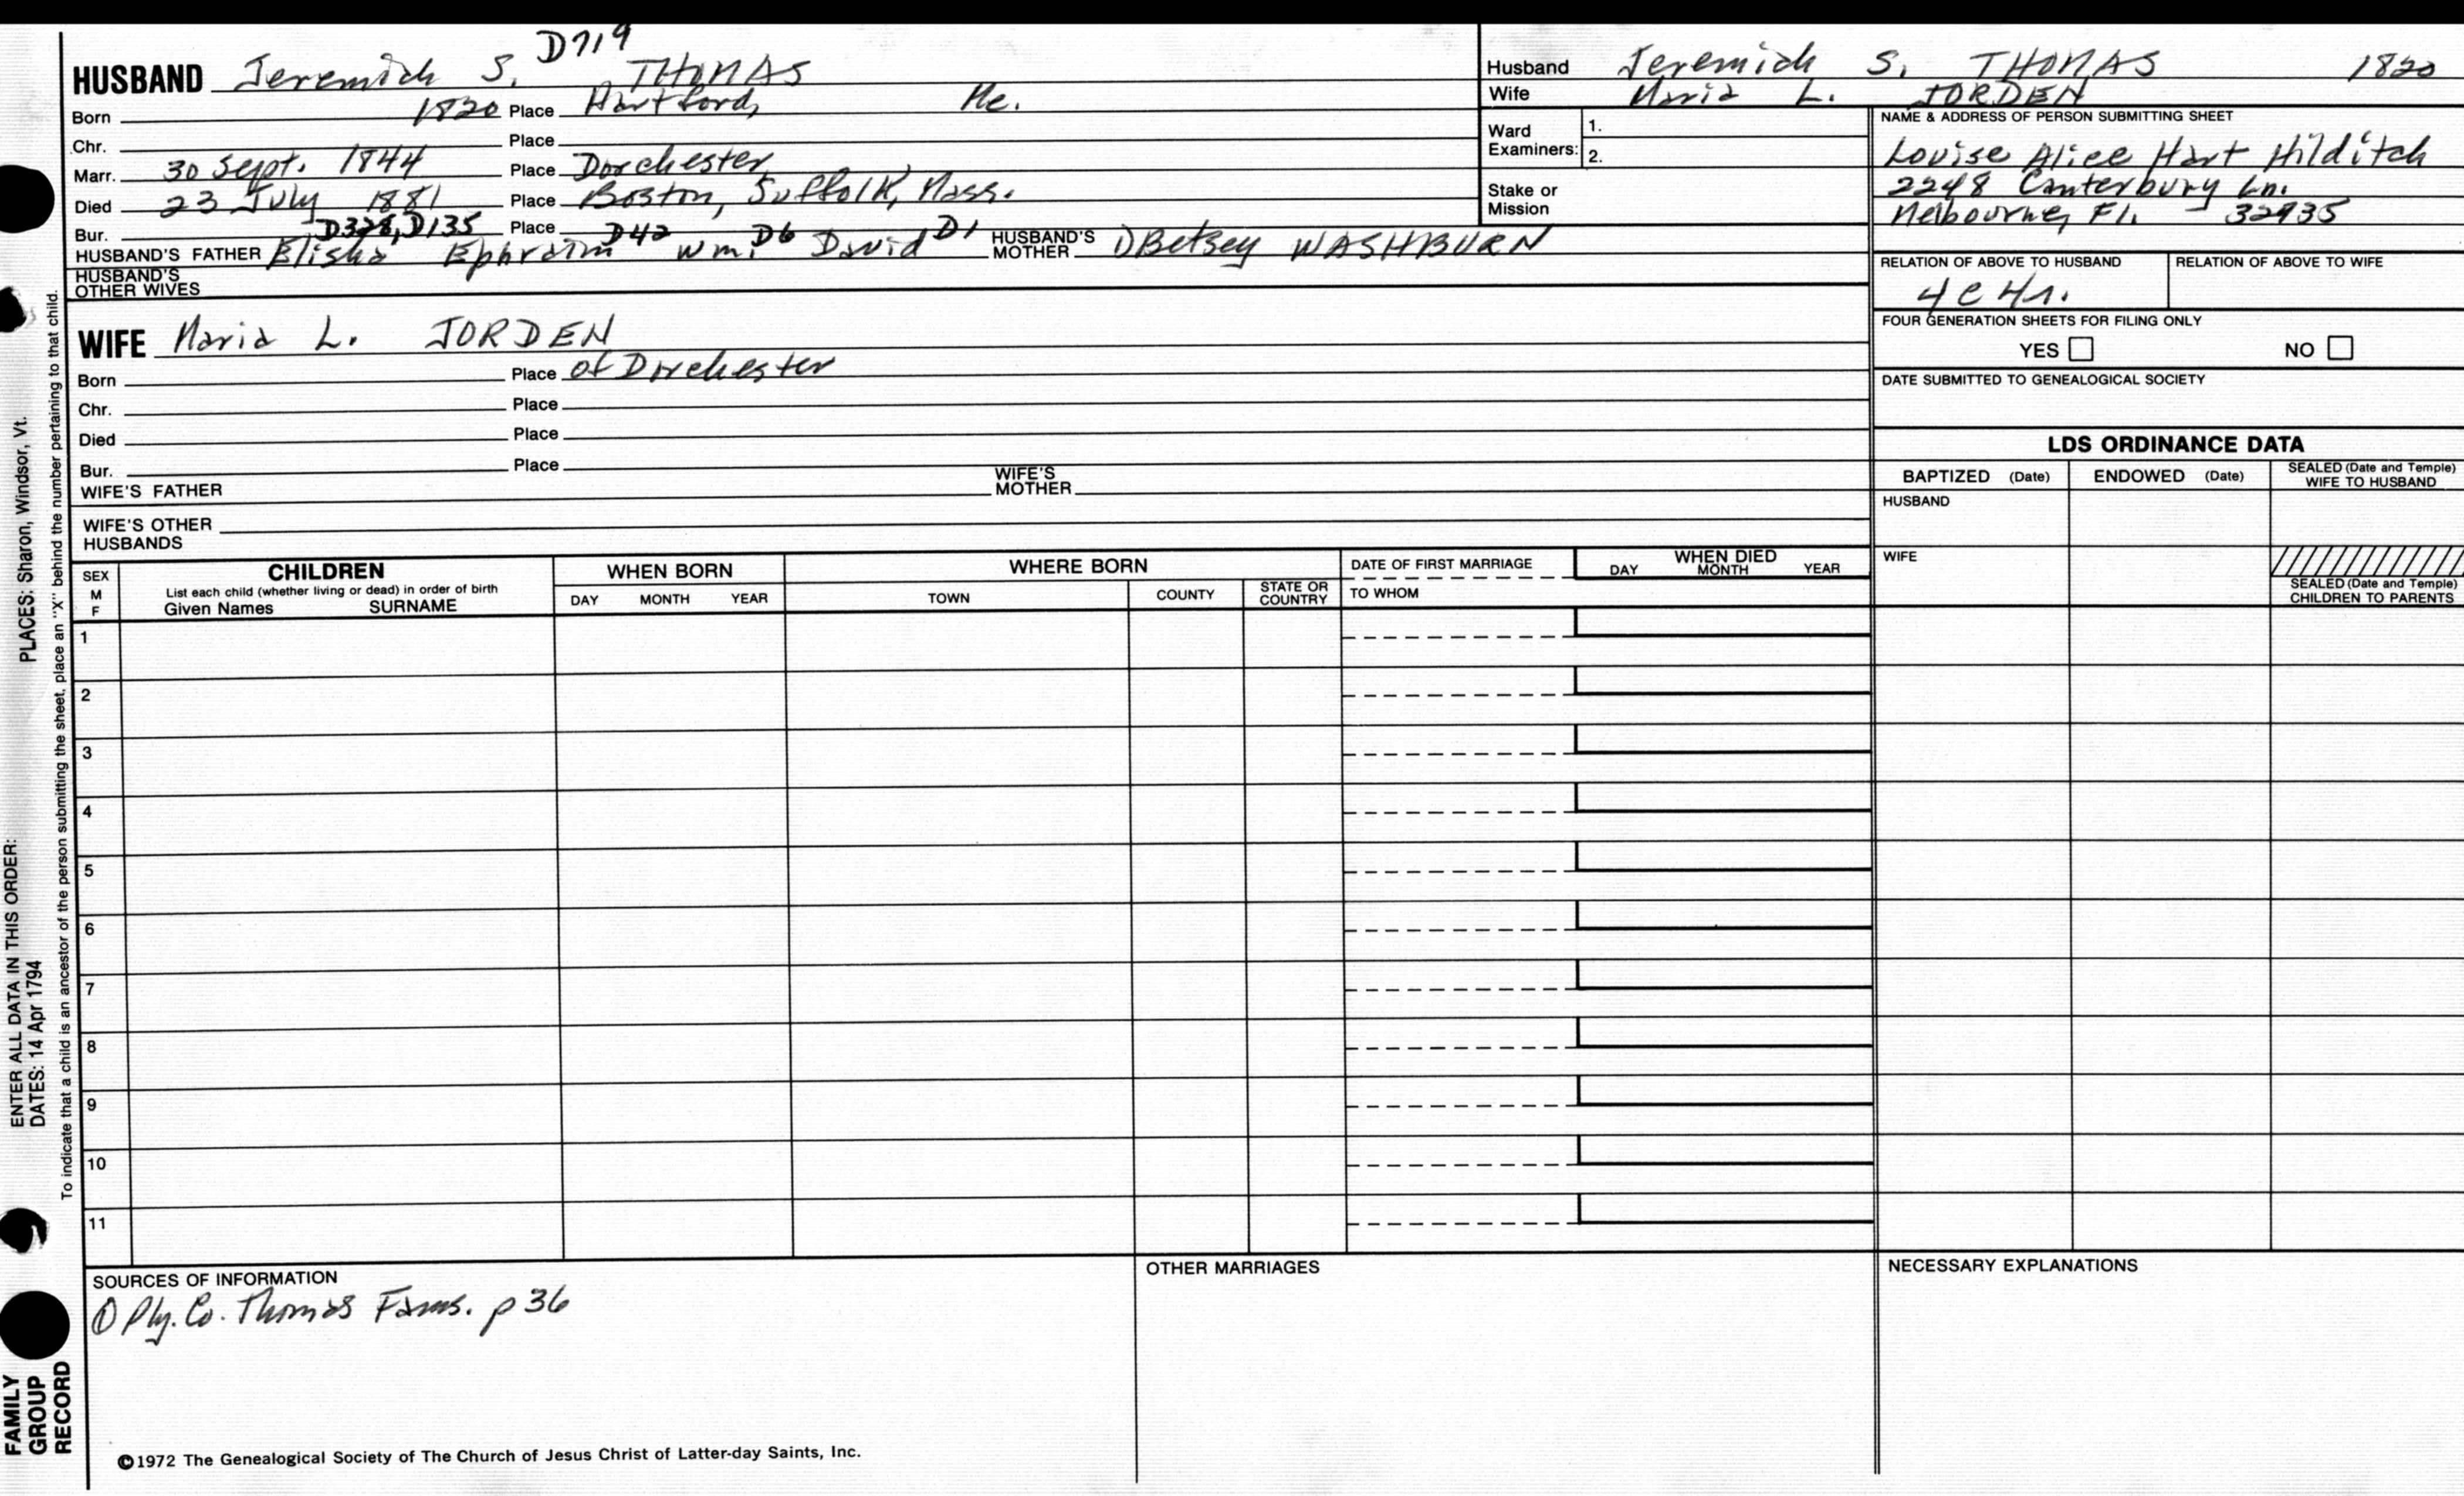 D719
HUSBAND Jeremiah S. THOMAS
Born 1820 Place Hartford, Me.
Chr. Place
Marr. 30 Sept. 1844 Place Dorchester
Died 23 July 1881 Place Boston, Suffolk, Mass.
Bur. D328, D135 Place D42 D6 D1
HUSBAND'S FATHER Elisha Ephraim Wm. David HUSBAND'S MOTHER ①Betsey WASHBURN
HUSBAND'S OTHER WIVES
WIFE Maria L. JORDEN
Born Place of Dorchester
Chr. Place
Died Place
Bur. Place
WIFE'S FATHER WIFE'S MOTHER
WIFE'S OTHER HUSBANDS
Husband Jeremiah S. THOMAS 1820
Wife Maria L. JORDEN
Ward Examiners: 1.
2.
Stake or Mission
NAME & ADDRESS OF PERSON SUBMITTING SHEET
Louise Alice Hart Hilditch
2248 Canterbury Ln.
Melbourne, Fl. - 32935
RELATION OF ABOVE TO HUSBAND RELATION OF ABOVE TO WIFE
4c4r.
FOUR GENERATION SHEETS FOR FILING ONLY
YES NO
DATE SUBMITTED TO GENEALOGICAL SOCIETY
LDS ORDINANCE DATA
BAPTIZED (Date) ENDOWED (Date) SEALED (Date and Temple) WIFE TO HUSBAND
HUSBAND
WIFE
SEALED (Date and Temple) CHILDREN TO PARENTS
SEX M F
CHILDREN
List each child (whether living or dead) in order of birth
Given Names SURNAME
WHEN BORN
DAY MONTH YEAR
WHERE BORN
TOWN COUNTY STATE OR COUNTRY
DATE OF FIRST MARRIAGE
TO WHOM
WHEN DIED
DAY MONTH YEAR
1
2
3
4
5
6
7
8
9
10
11
SOURCES OF INFORMATION
① Ply. Co. Thomas Fams. p 36
OTHER MARRIAGES
NECESSARY EXPLANATIONS
©1972 The Genealogical Society of The Church of Jesus Christ of Latter-day Saints, Inc.
FAMILY GROUP RECORD
ENTER ALL DATA IN THIS ORDER:
DATES: 14 Apr 1794
PLACES: Sharon, Windsor, Vt.
To indicate that a child is an ancestor of the person submitting the sheet, place an "X" behind the number pertaining to that child.